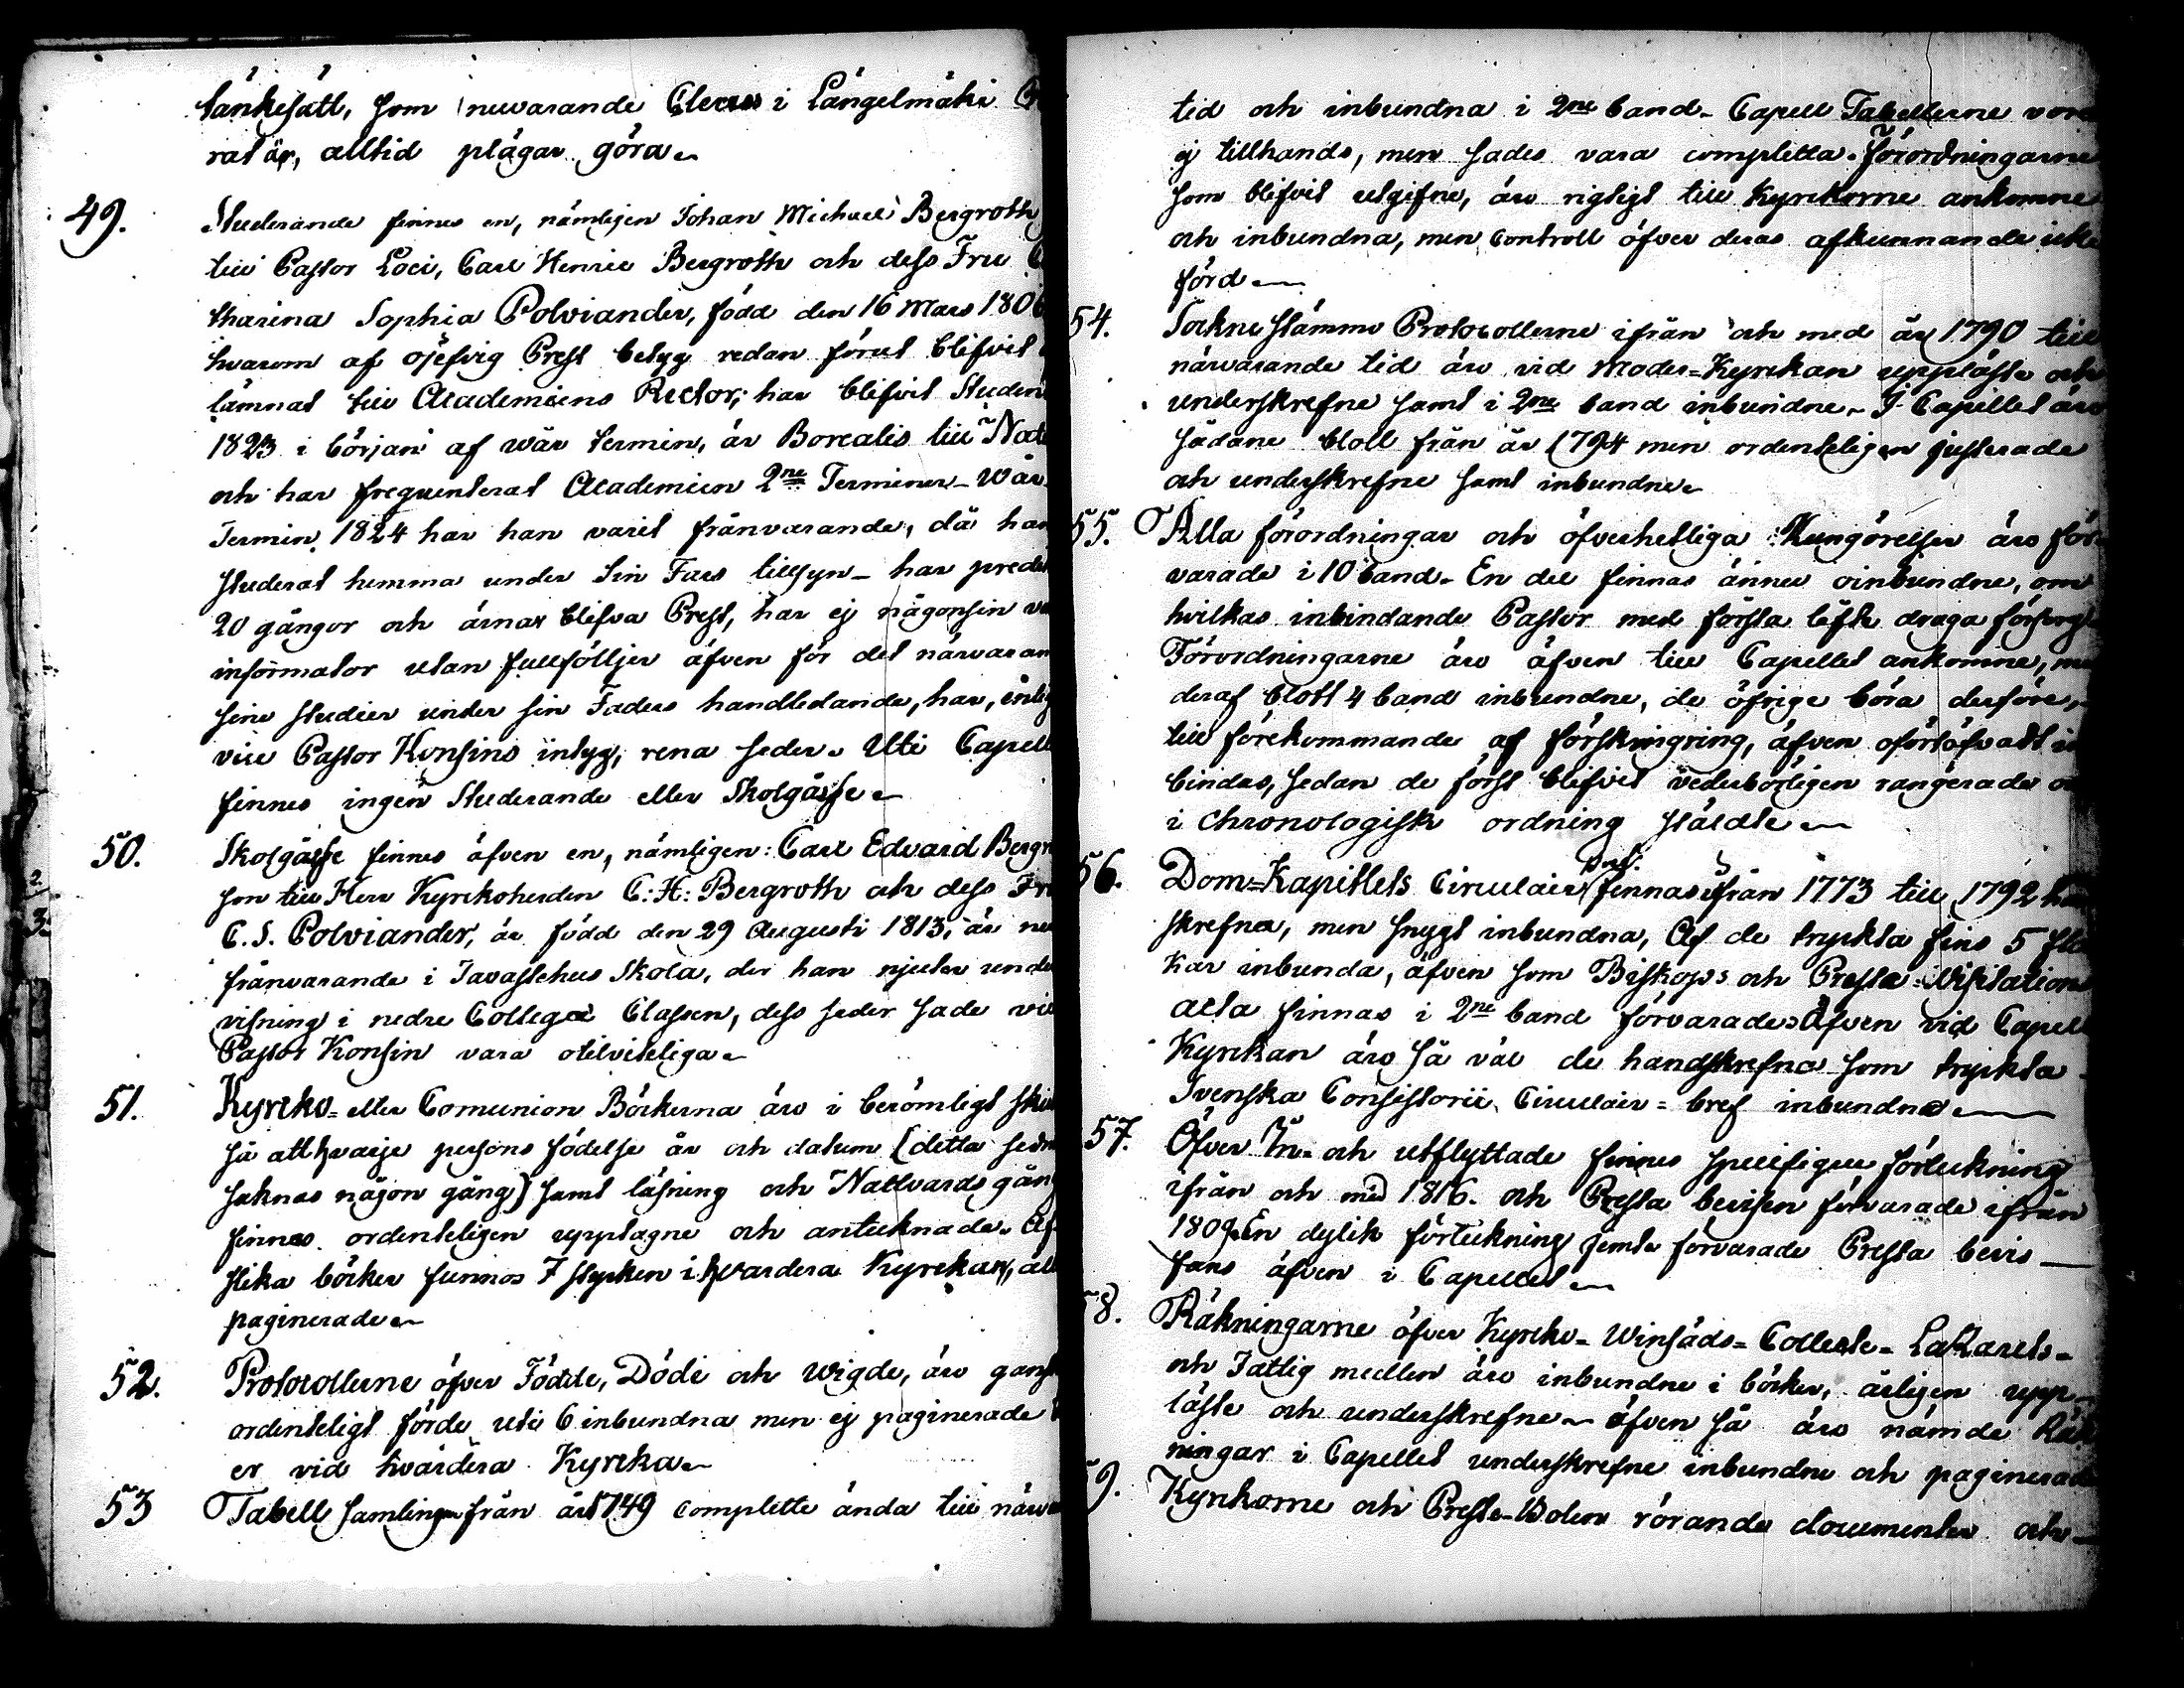 tänkesätt, som nuvarande Clerus i Längelmäki
rat är, alltid plägar göra.
49. Studerande finnes en, nämligen Johan Michael Bergroth
till Pastor Loci, Carl Henric Bergroth och dess Fru
tharina Sophia Polviander, född den 16 Mars 180
hvarom af ojefvig Prest betyg redan förut blifvit
lämnat till Academiens Rector; har blifvit Student
1823 i början af wår termin, är Borealis till Nat
och har frequenterat Academien 2ne Terminer - Wår
Termin 1824 har han varit frånvarande, då han
studerat hemma under Sin Fars tillsyn - har predik
20 gångor och ärnar blifva Prest, har ej någonsin va
informator utan fullföljer äfven för det närvaran
sine studier under sin Faders handledande, har, enlig
vice Pastor Konsins intyg, rena seder. Uti Capell
finnes ingen Studerande eller Skolgåsse.
50. Skolgåsse finnes äfven en, nämligen: Carl Edvard Bergr
son till Herr Kyrkoherden C: H: Bergroth och dess Fru
C. S. Polviander, är född den 29 Augusti 1813, är nu
frånvarande i Tavastehus Skola, der han njuter unde
visning i nedre Collega Classen, dess seder sade vic
Pastor Konsin vara otelviteliga.
51. Kyrcko- eller Comunion Böckerna äro i berömligt skic
så att hvarje persons födelse år och datum (detta sedn
saknas någon gång) samt läsning och Nattvards gång
finnes ordenteligen upptagne och antecknade. Af
slika böcker funnos 7 stycken i hvardera Kyrckan, all
paginerade.
52. Protocollerne öfver Födde, Döde och wigde, äro gansk
ordenteligt förde uti 6 inbundna men ej paginerade
er vid hvardera Kyrcka.
53 Tabell samlingen från år 1749 complette ända till närva
tid och inbundna i 2ne band. Capell Tabellerne vore
ej tillhands, men sades vara completta. Förordningarne
som blifvit utgifne, äro rigtigt till Kyrckorne ankomne
och inbundna, men Controll öfver deras afkunnande icke
förd.
54. Sockne stämmo Protocollerne ifrån och med år 1790 till
närvarande tid äro vid Moder-Kyrckan uppläste och
underskrefne samt i 2ne band inbundne. I Capellet äro
sådane blott från år 1794 men ordenteligen justerade
och underskrefne samt inbundne.
55. Alla förordningar och öfverhetliga Kungörelser äro för
varade i 10 band. En del finnas ännu oinbundne, om
hvilkas inbindande Pastor med första löfte draga försorg.
Förordningarne äro äfven till Capellet ankomne, men
deraf blott 4 band inbundne, de öfrige böra derföre,
till förekommande af förskingring, äfven oförtöfvadt in
bindas, sedan de först blifvit vederbörligen rangerade och
i chronologisk ordning stäldte.
56. Dom-Kapitlets Circulair bref: finnas ifrån 1773 till 1792 han
skrefna, men snygt inbundna, Af de tryckta fins 5 sty
kar inbunda, äfven som Biskops och Prosta-Visitations
acta finnas i 2ne band förvarade. Äfven vid Capell
Kyrckan äro så väl de handskrefna som tryckta
Svenska Consistorii Circulair-bref inbundna.
57. Öfver In- och utflyttade finnes specifique förteckning
ifrån och med 1816. och Presta bevisen förvarade ifrån
1809. En dylik förteckning jemte förvarade Presta bevis
fans äfven i Capellet.
58. Räkningarne öfver Kyrcko- Winsäds- Collecte- LaZarets-
och Fattig medlen äro inbundne i böcker, årligen upp
läste och underskrefne. äfven så äro nämde Räk
ningar i Capellet underskrefne inbundne och paginerade
59. Kyrkorne och Preste-Bolen rörande documenter och